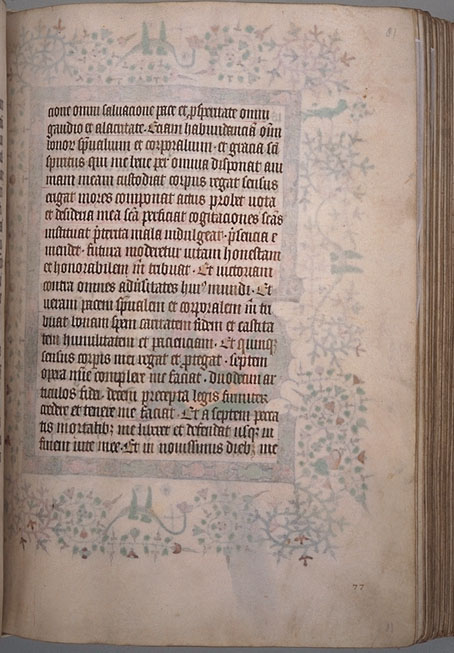 cione omni saluacione pace et ꝓsperitate omni
gaudio et alacritate. Eciam habundanciā oīm
bonoꝝ spūalium et corporalium. et gracia sc̄i
spiritus qui me bene per omnia disponat ani
mam meam custodiat corpus regat sensus
erigat mores componat actus probet uota
et desideria mea sc̄a perficiat cogitaciones sc̄as
instituat p̄terita mala indulgeat. p̄sencia e
mendet. futura moderetur uitam honestam
et honorabilem m̄ tribuat. Et uictoriam
contra omnes adu̅sitates huiꝰ mundi. Et
ueram pacem spūalem et corporalem m̄ tri
buat bonam spem caritatem fidem et castita
tem humilitatem et pacienciam. Et quinqꝫ
sensus corpis mei regat et ꝓtegat. septem
opera mīe complere me faciat. duodecim ar
ticulos fidei. decem precepta legis firmiter
credere et tenere me faciat. Et a septem pecca
tis mortalibꝫ me liberet et defendat usqꝫ in
finem uite mee. Et in nouissimis diebꝫ me
81
77